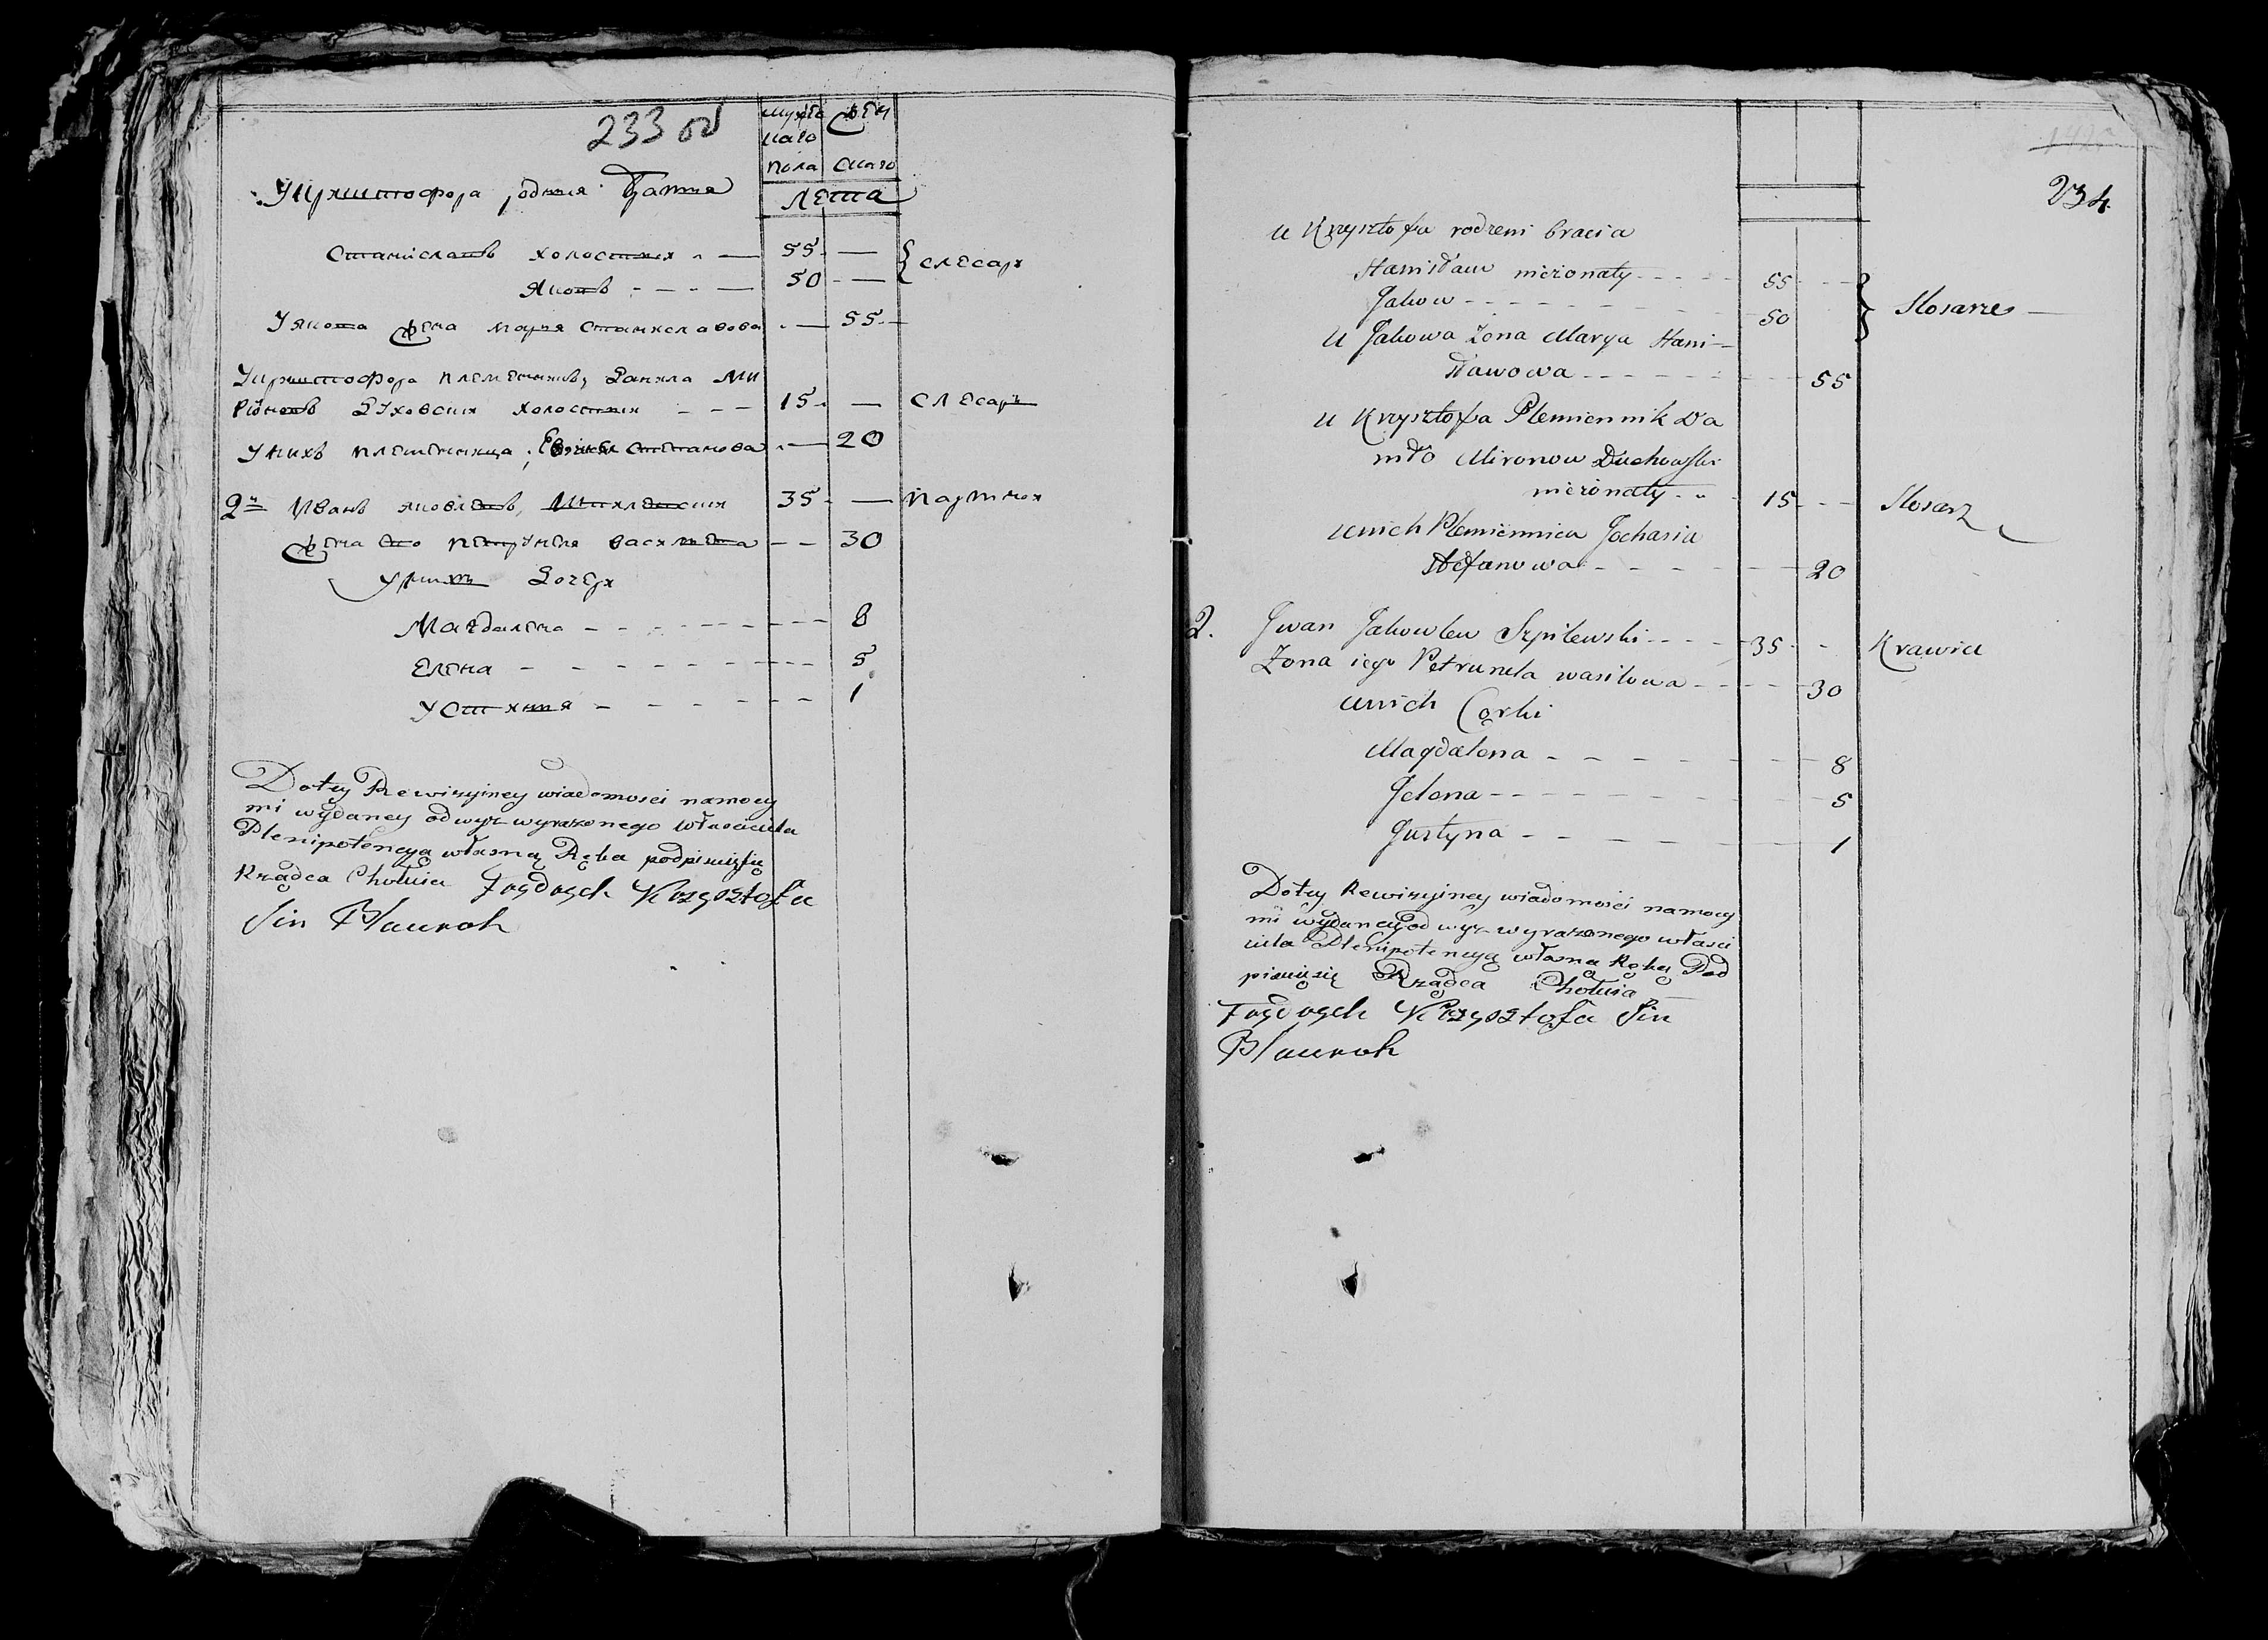 233 об
мужес каго пола
жен скаго
лета
У Криштофора родныя братья
Станиславъ холостыи - — 55 — слесари
Яковъ - - - — 50 —
У Якова жена Марья Станиславова - — 55
У Криштофора племянникъ, Данила Ми
роновъ Духовскии холостыи - - - 15 — слесарь
У нихъ племянница, Степанова - — 20
2й Иванъ Яковлевъ, Шпилевскии 35 — партнои
жена его Петрунеля Васильева - - 30
У нихъ дочери
Магдалена - - - - - - 8
Елена - - - - - - - 5
Устиния - - - - - - 1
Do tey Rewizyiney wiadomosci namocy
mi wydaney od wyz wyrazonego Własciciela
Plenipotencyą własną Ręką podpisuię się
Rządca Chołuia Frydrych Krzysztofa
Sin Blaurok
234
u Krzysztofa rodzeni bracia
Stanisław niezonaty - - - - 55 - - Slosarze
Jakow - - - - - - - - 50
U Jakowa Zona Marya Stani-
sławowa - - - - - - - 55
u Krzysztofa Plemiennik Da
niło Mironow Duchowski
niezonaty - - 15 - - Slosarz
unich Plemiennica
Stefanowa - - - - - 20
2. Jwan Jakowlew Szpilewski - - - - 35 - - Krawiec
Zona iego Petrunela wasilowa - - - - 30
unich Corki
Magdalena - - - - - - 8
Jelena - - - - - - - - 5
Justyna - - - - - - 1
Do tey Rewizyiney wiadomosci namocy
mi wydaney od wyz wyrazonego własci
ciela Plenipotencyą własną Ręką Pod
pisuię się Rządca Chołuia
Frydrych Krzysztofa Sin
Blaurok